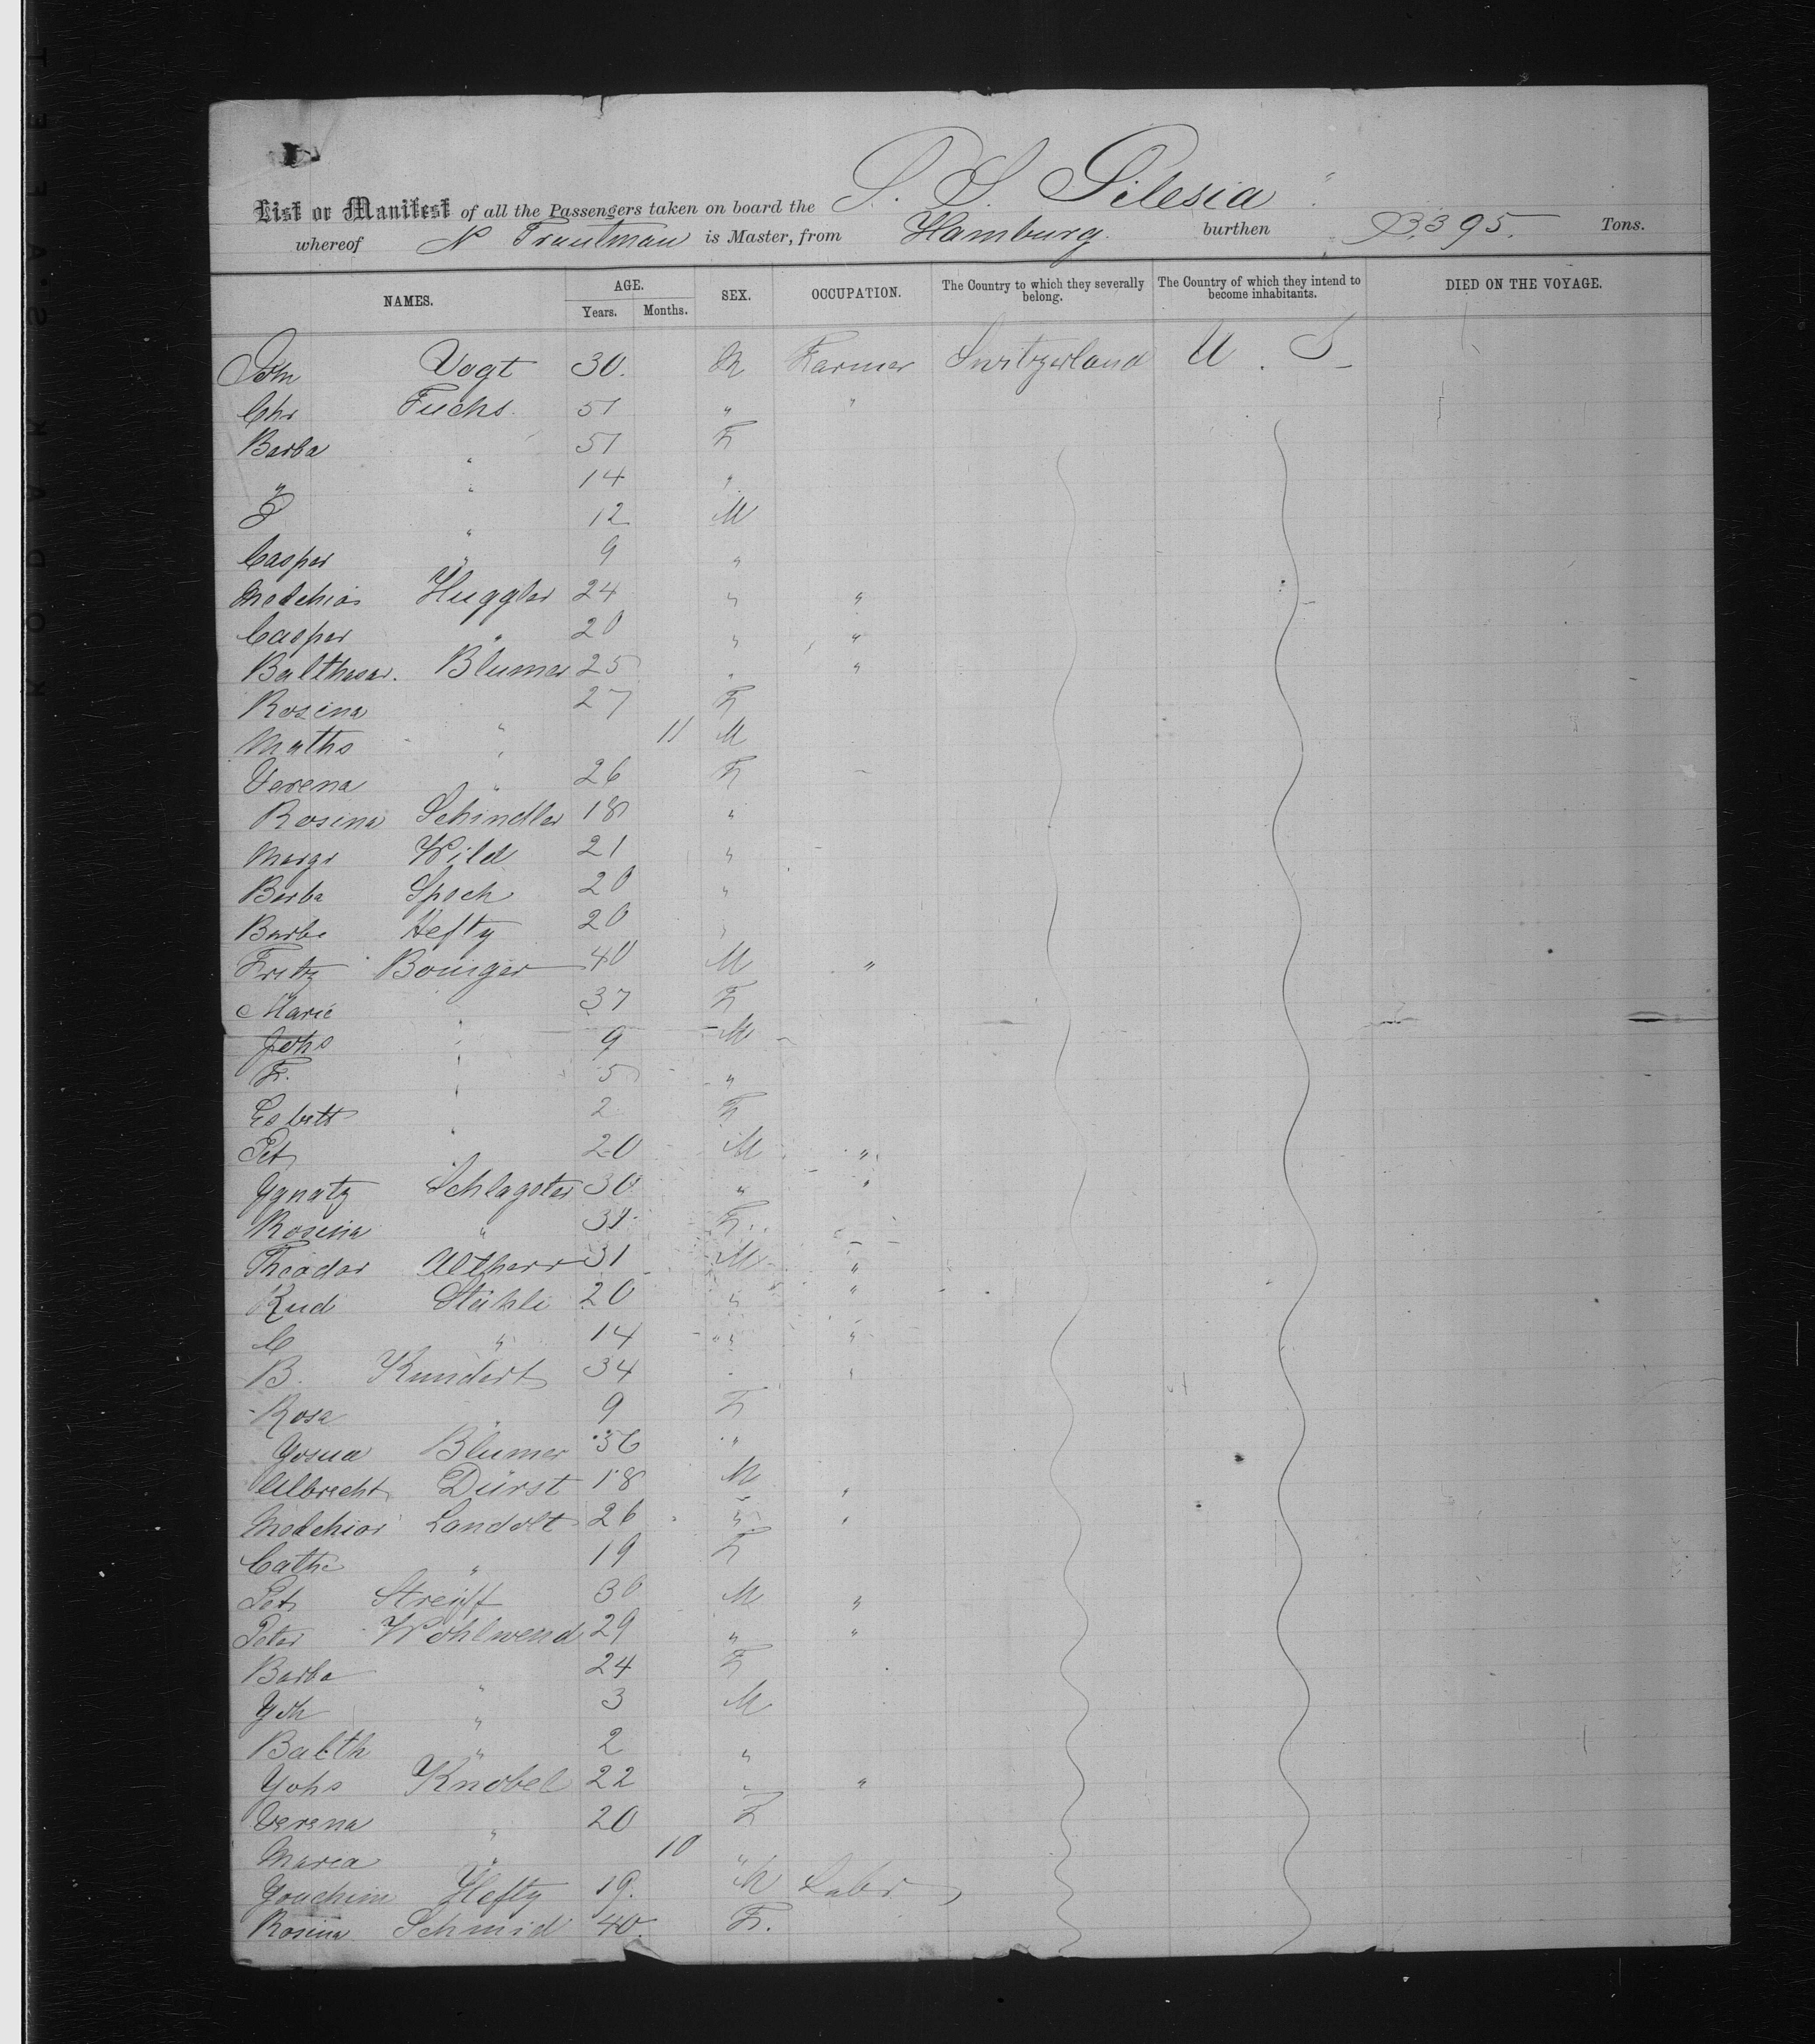 List or Manifest of all the Passengers taken on board the S. S. Silesia
whereof N Trautman is Master, from Hamburg. burthen 3395. Tons.
NAMES. AGE. Years. Months. SEX. OCCUPATION. The Country to which they severally belong. The Country of which they intend to become inhabitants. DIED ON THE VOYAGE.
John Vogt 30. M Farmer Switzerland U. S
Chr Fuchs 51 " "
Barba " 51 F
" " 14 "
" 12 M
Casper " 9 "
Melchior Huggler 24 " "
Casper " 20 " "
Balthasar. Blumer 25 " "
Rosina " 27 F
Maths " 11 M
Verena " 26 F
Rosina Schindler 18 "
Margr Wild 21 "
Barba 20 "
Barba Hefty 20 "
Fritz 40 M "
Marie " 37 F
Johs " 9 M
F. " 5 "
Esbett " 2 F
Pet " 20 M "
Ygnatz Schlagster 30 " "
Rosina " 31 F.
Theodor Altherr 31 M "
Rud Stähli 20 " "
C " 14 " "
B. Kundert 34 " "
Rosa " 9 F
Yosua Blumer 36 "
Albrecht Dürst 18 M "
Melchior Landolt 26 " "
Cathe " 19 F
Pet Streiff 30 M "
Peter Wohlwend 29 " "
Barba " 24 F
Yoh " 3 M
Balth " 2 "
Yohs Knobel 22 " "
Verena " 20 F
Maria " 10 "
Yoachim Hefty 19. M Labr
Rosina Schmid 40. F.
KODAK SAFETY